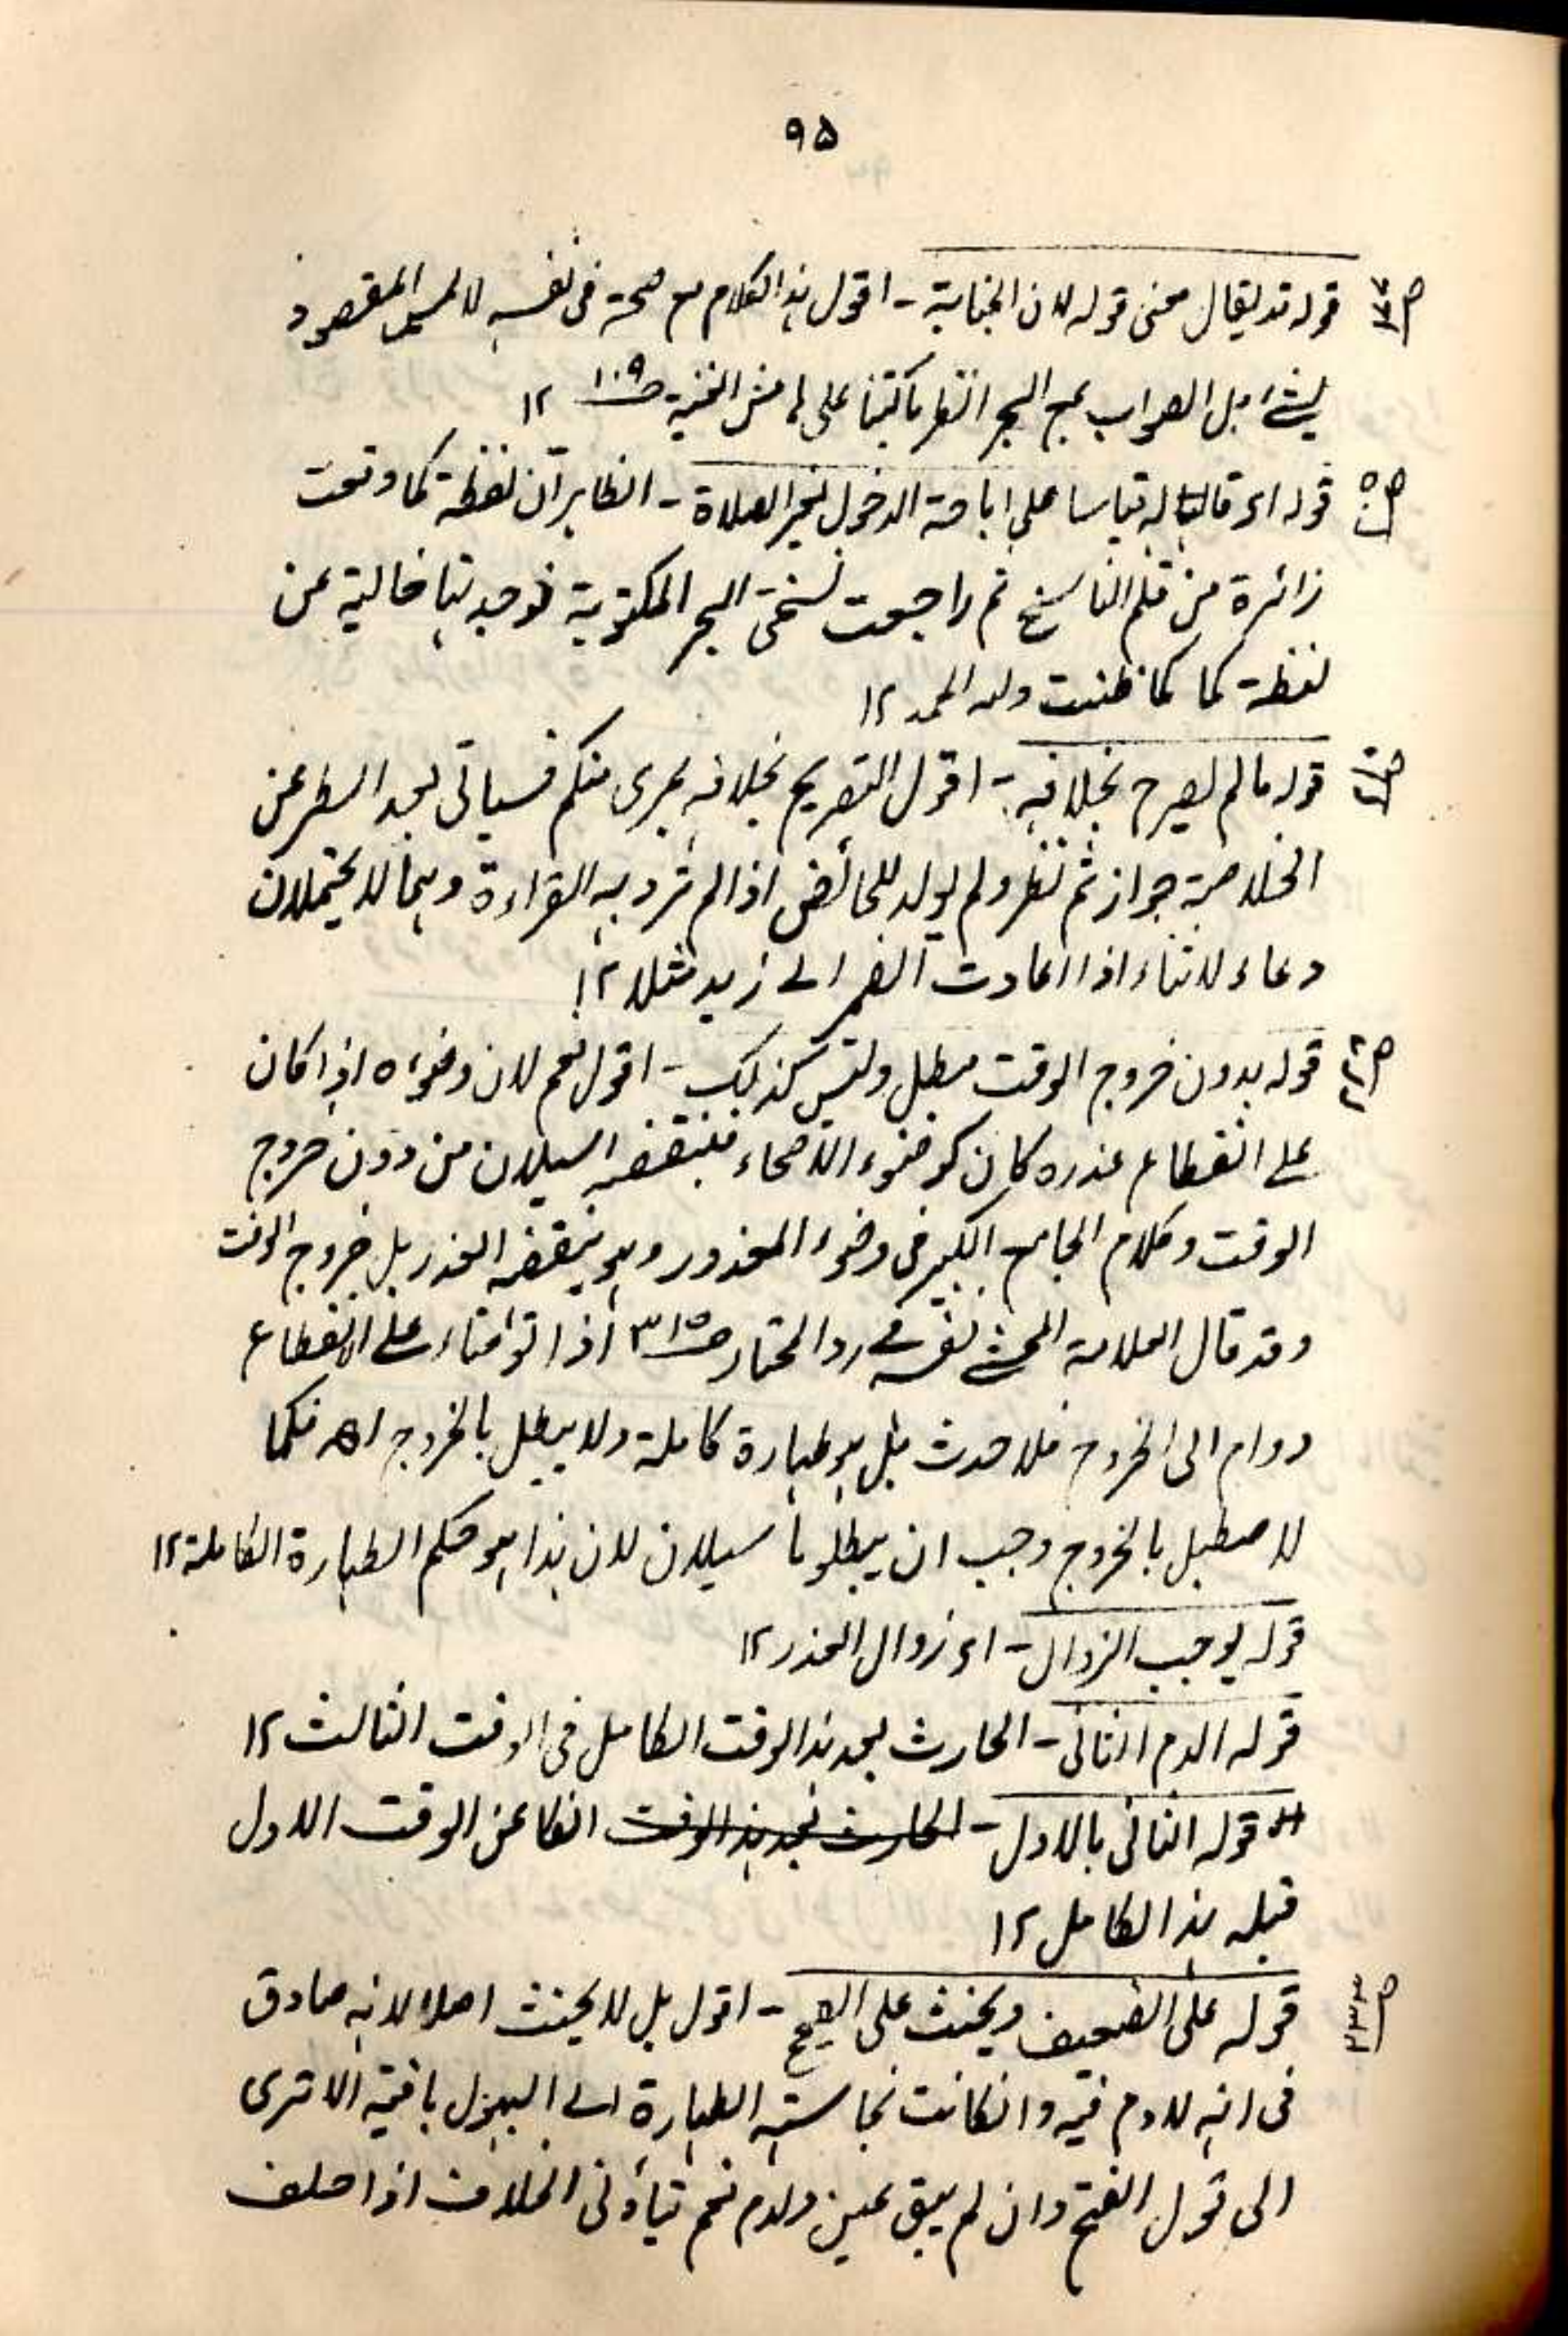 ۹۵
قوله قد يقال معنى قوله لان الجنابة - اقول هذا الكلام مع صحته فى نفسه لا يمس المقصود
بشئ بل الصواب مع البحر انظر ما كتبنا على هامش الغنية ص۱۰۹ ۱۲
ص۵۰ قوله اى قاله قياسا على اباحة الدخول لغير الصلاة - الظاهر ان لفظة كما وقعت
زائدة من قلم الناسخ ثم راجعت نسختى البحر المكتوبة فوجدتها خالية عن
لفظة كما كما ظننت ولله الحمد ۱۲
قوله ما لم يصرح بخلافه - اقول التصريح بخلافه بمرى منكم فسياتى بعد اسطر عن
الخلاصة جواز ثم نظر ولم يولد للحائض اذا لم ترد به القراءة وهما لا يحتملان
دعاء ولا ثناء اذا اعادت الضمير الى زيد مثلا ۱۲
قوله بدون خروج الوقت مبطل وليس كذلك - اقول نعم لان وضوءه اذا كان
على انقطاع عذره كان كوضوء الاصحاء فينقضه السيلان من دون خروج
الوقت وكلام الجامع الكبير فى وضوء المعذور وهو ينقضه العذر بل خروج الوقت
وقد قال العلامة المحشى نفسه فى رد المحتار ص۳۱۵ اذا توضأ على الانقطاع
ودام الى الخروج فلا حدث بل هو طهارة كاملة ولا يبطل بالخروج اھ فكما
لا يبطل بالخروج وجب ان يبطل بالسيلان لان هذا هو حكم الطهارة الكاملة ۱۲
قوله يوجب الزوال - اى زوال العذر ۱۲
قوله الدم الثانى - الحادث بعد هذا الوقت الكامل فى الوقت الثالث ۱۲
قوله الثانى بالاول - الحادث بعد هذا الوقت انفكا عن الوقت الاول
قبله هذا الكامل ۱۲
ص۲۳۳ قوله على الضعيف ويحنث على الصحيح - اقول بل لا يحنث اصلا لانه صادق
فى انه لا دم فيه وانكانت نجاسته الطهارة الى البول باقية الا ترى
الى قول الفتح وان لم يبق عين ولادم نعم يتأتى الخلاف اذا حلف